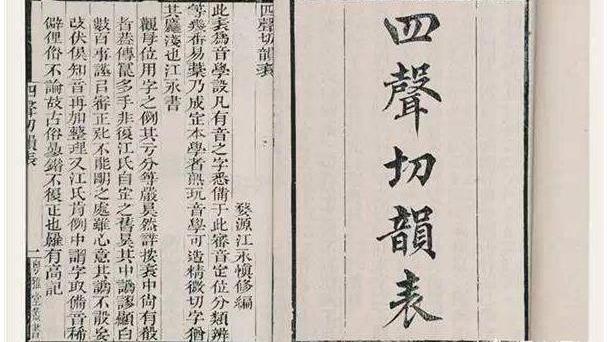 四聲切韻表
四聲切韻表
婺源江永慎修編
此表爲音學設凡有音之字悉備于此審音定位分類辨
等幾番易藁乃成定本學者熟玩音學可造精微切字猶
其麤淺也江永書
觀母位用字之例其云分等嚴具然詳按表中尙有殽
者蓋傳寫多手非復江氏自定之舊矣其中譌謬顯白
數百事謹已審正 不能明之處雖心意其譌不敢妄
改伏俟知音再加整理又江氏有例中謂字取備音稀
僻俚俗不論故古俗 不復正也羅有高記
四聲切韻表
一
粤雅堂叢書